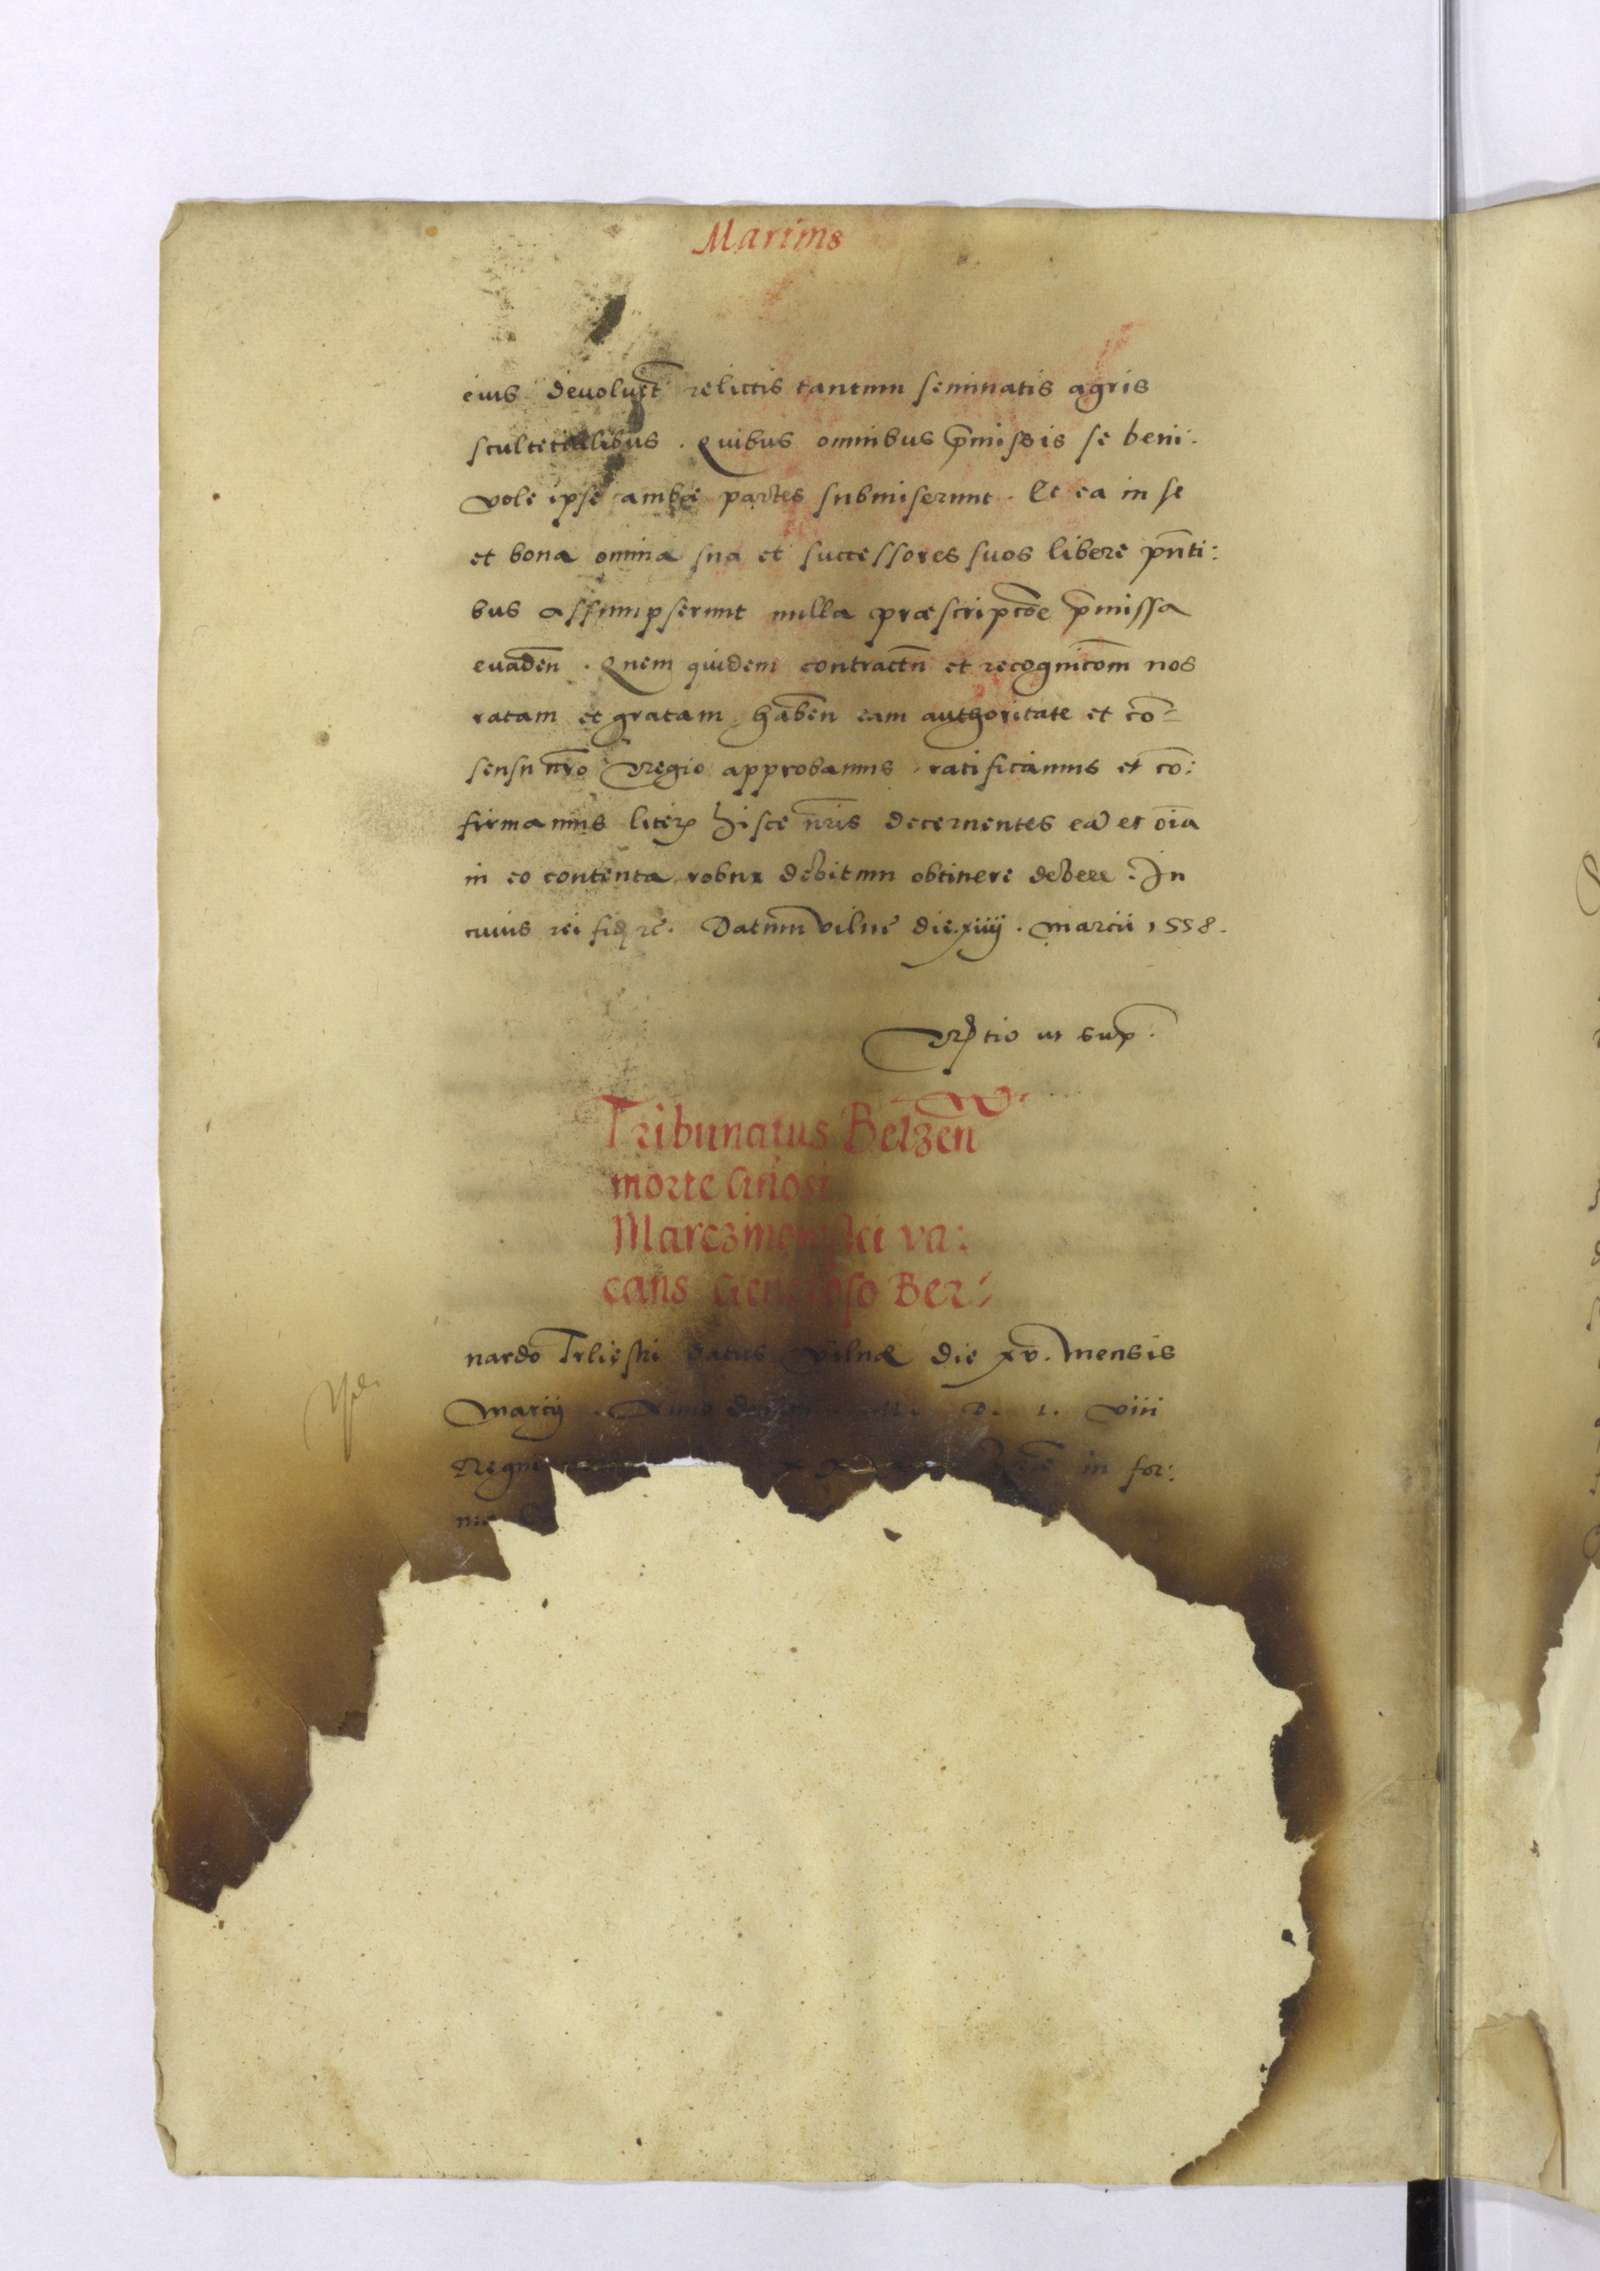 Martius
eius devolvēt relictis tantum seminatis agris
scultetialibus. Quibus omnibus p̄missis se beni:
vole ipsę ambæ partes submiserunt. Et ea in se
et bona omnia sua et successores suos libere pn̄ti:
bus assumpserunt nulla præscripcōe p̄missa
evadeñ. Quem quidem contractū et recognicōm nos
ratam et gratam habeñ eam authoritate et cō:
sensu nr̄o Regio approbamus ratificamus et cō:
firmamus literꝭ hisce nr̄is decernentes eā et oīa
in eo contenta robur debitum obtinere debere. In
cuius rei fidē rē. Datum Vilnę die xiiij. Marcii 1558.
Rꝑtio ut supꝭ.
Tribunatus Belzeñ
morte Gñosi
Marczinowski va:
cans Generoso Ber:
nardo datus Vilnæ die xv. Mensis
Marcij. Anno D. L. viii
Regni in for: